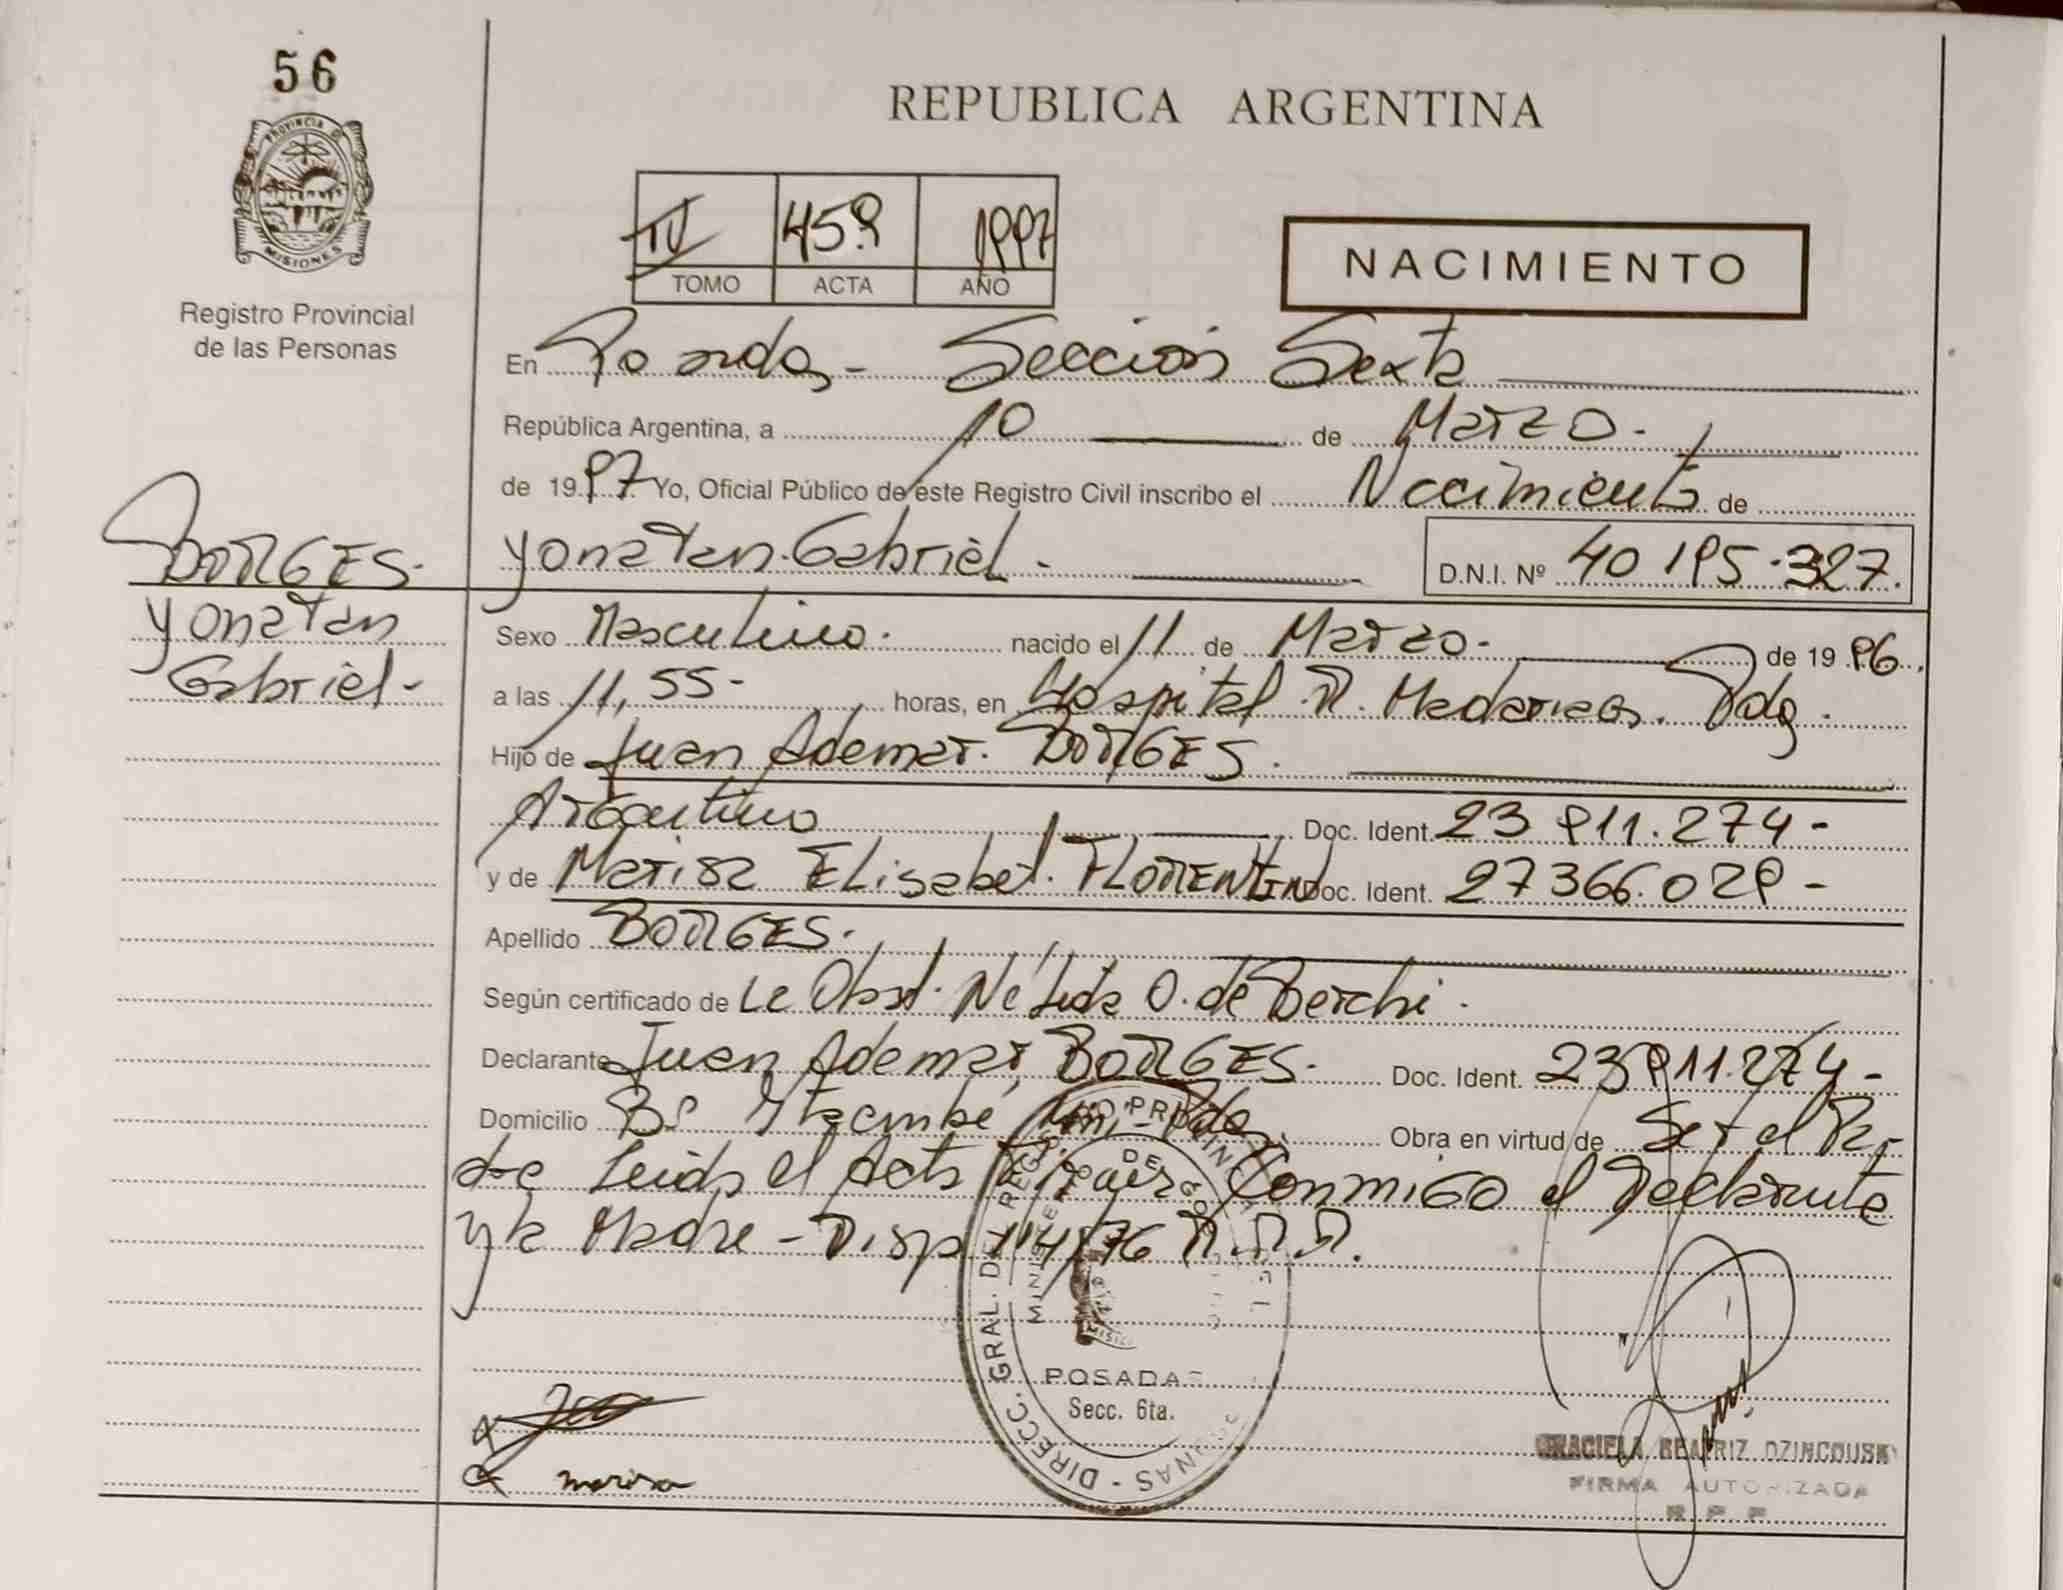 56
REPUBLICA ARGENTINA
PROVINCIA DE
MISIONES
Registro Provincial
de las Personas
IV 459 1997
TOMO ACTA AÑO
NACIMIENTO
En Posadas - Sección Sexta
República Argentina, a 10 de Marzo.
de 1997 Yo, Oficial Público de este Registro Civil inscribo el Nacimiento de
Yonatan Gabriel - D.N.I. Nº 40 195.327.
BORGES.
Yonatan
Gabriel -
Sexo Masculino. nacido el 11 de Marzo. de 1996.
a las 11,55- horas, en Hospital R. Madariaga. Pdas.
Hijo de Juan Ademar. BORGES.
Argentino Doc. Ident. 23 911.274-
y de Marisa Elisabet. FLORENTIN Doc. Ident. 27366.029-
Apellido BORGES.
Según certificado de La Obst. Nélida O. de Berchi.
Declarante Juan Ademar BORGES. Doc. Ident. 23911.274-
Domicilio Bº Itaembé Miní - Pdas. Obra en virtud de Ser el Pa-
dre Leida el Acta Firman Conmigo el Declarante
y la Madre - Disp 114/76 R.P.P.
DIRECC. GRAL. DEL REG. PROVINCIAL
MINISTERIO DE GOB
MISIONES
POSADAS
Secc. 6ta.
marisa
GRACIELA BEATRIZ DZINCOUSKY
FIRMA AUTORIZADA
R P P